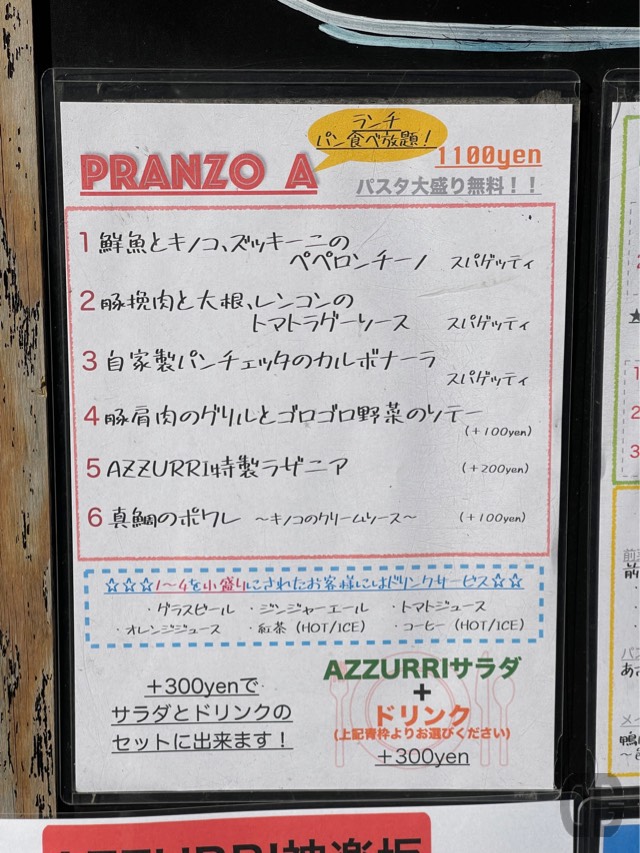 ランチ
パン食べ放題!
PRANZO A
1100yen
パスタ大盛り無料!!
1 鮮魚とキノコ、ズッキーニの
ペペロンチーノ スパゲッティ
2 豚挽肉と大根、レンコンの
トマトラグーソース スパゲッティ
3 自家製パンチェッタのカルボナーラ
スパゲッティ
4 豚肩肉のグリルとゴロゴロ野菜のソテー
(+100yen)
5 AZZURRI特製ラザニア (+200yen)
6 真鯛のポワレ ~キノコのクリームソース~ (+100yen)
☆☆☆1~4を小盛りにされたお客様にはドリンクサービス☆☆
・グラスビール ・ジンジャーエール ・トマトジュース
・オレンジジュース ・紅茶(HOT/ICE) ・コーヒー(HOT/ICE)
+300yenで
サラダとドリンクの
セットに出来ます!
AZZURRIサラダ
+
ドリンク
(上記青枠よりお選びください)
+300yen
AZZURRI神楽坂